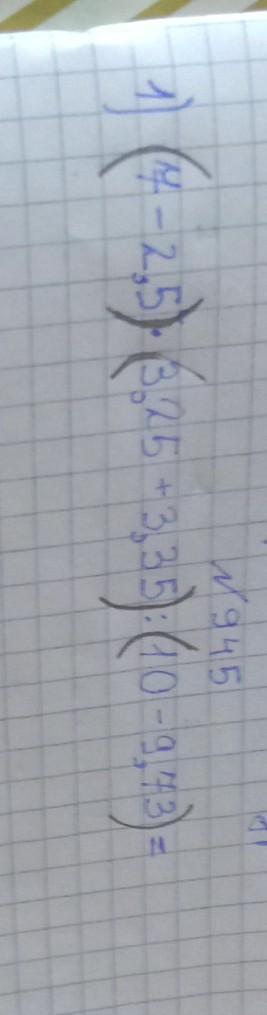 N 945
1) (7 - 2,5) · (3,25 + 3,35) : (10 - 9,73) =